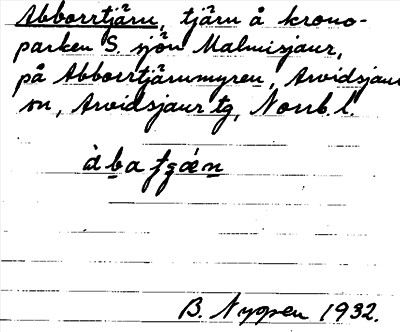 Abborrtjärn, tjärn å krono-
parken S. sjön Malmisjaur,
på Abborrtjärnmyren, Arvidsjaur
sn, Arvidsjaur tg, Norrb. l.
B. Nygren 1932.